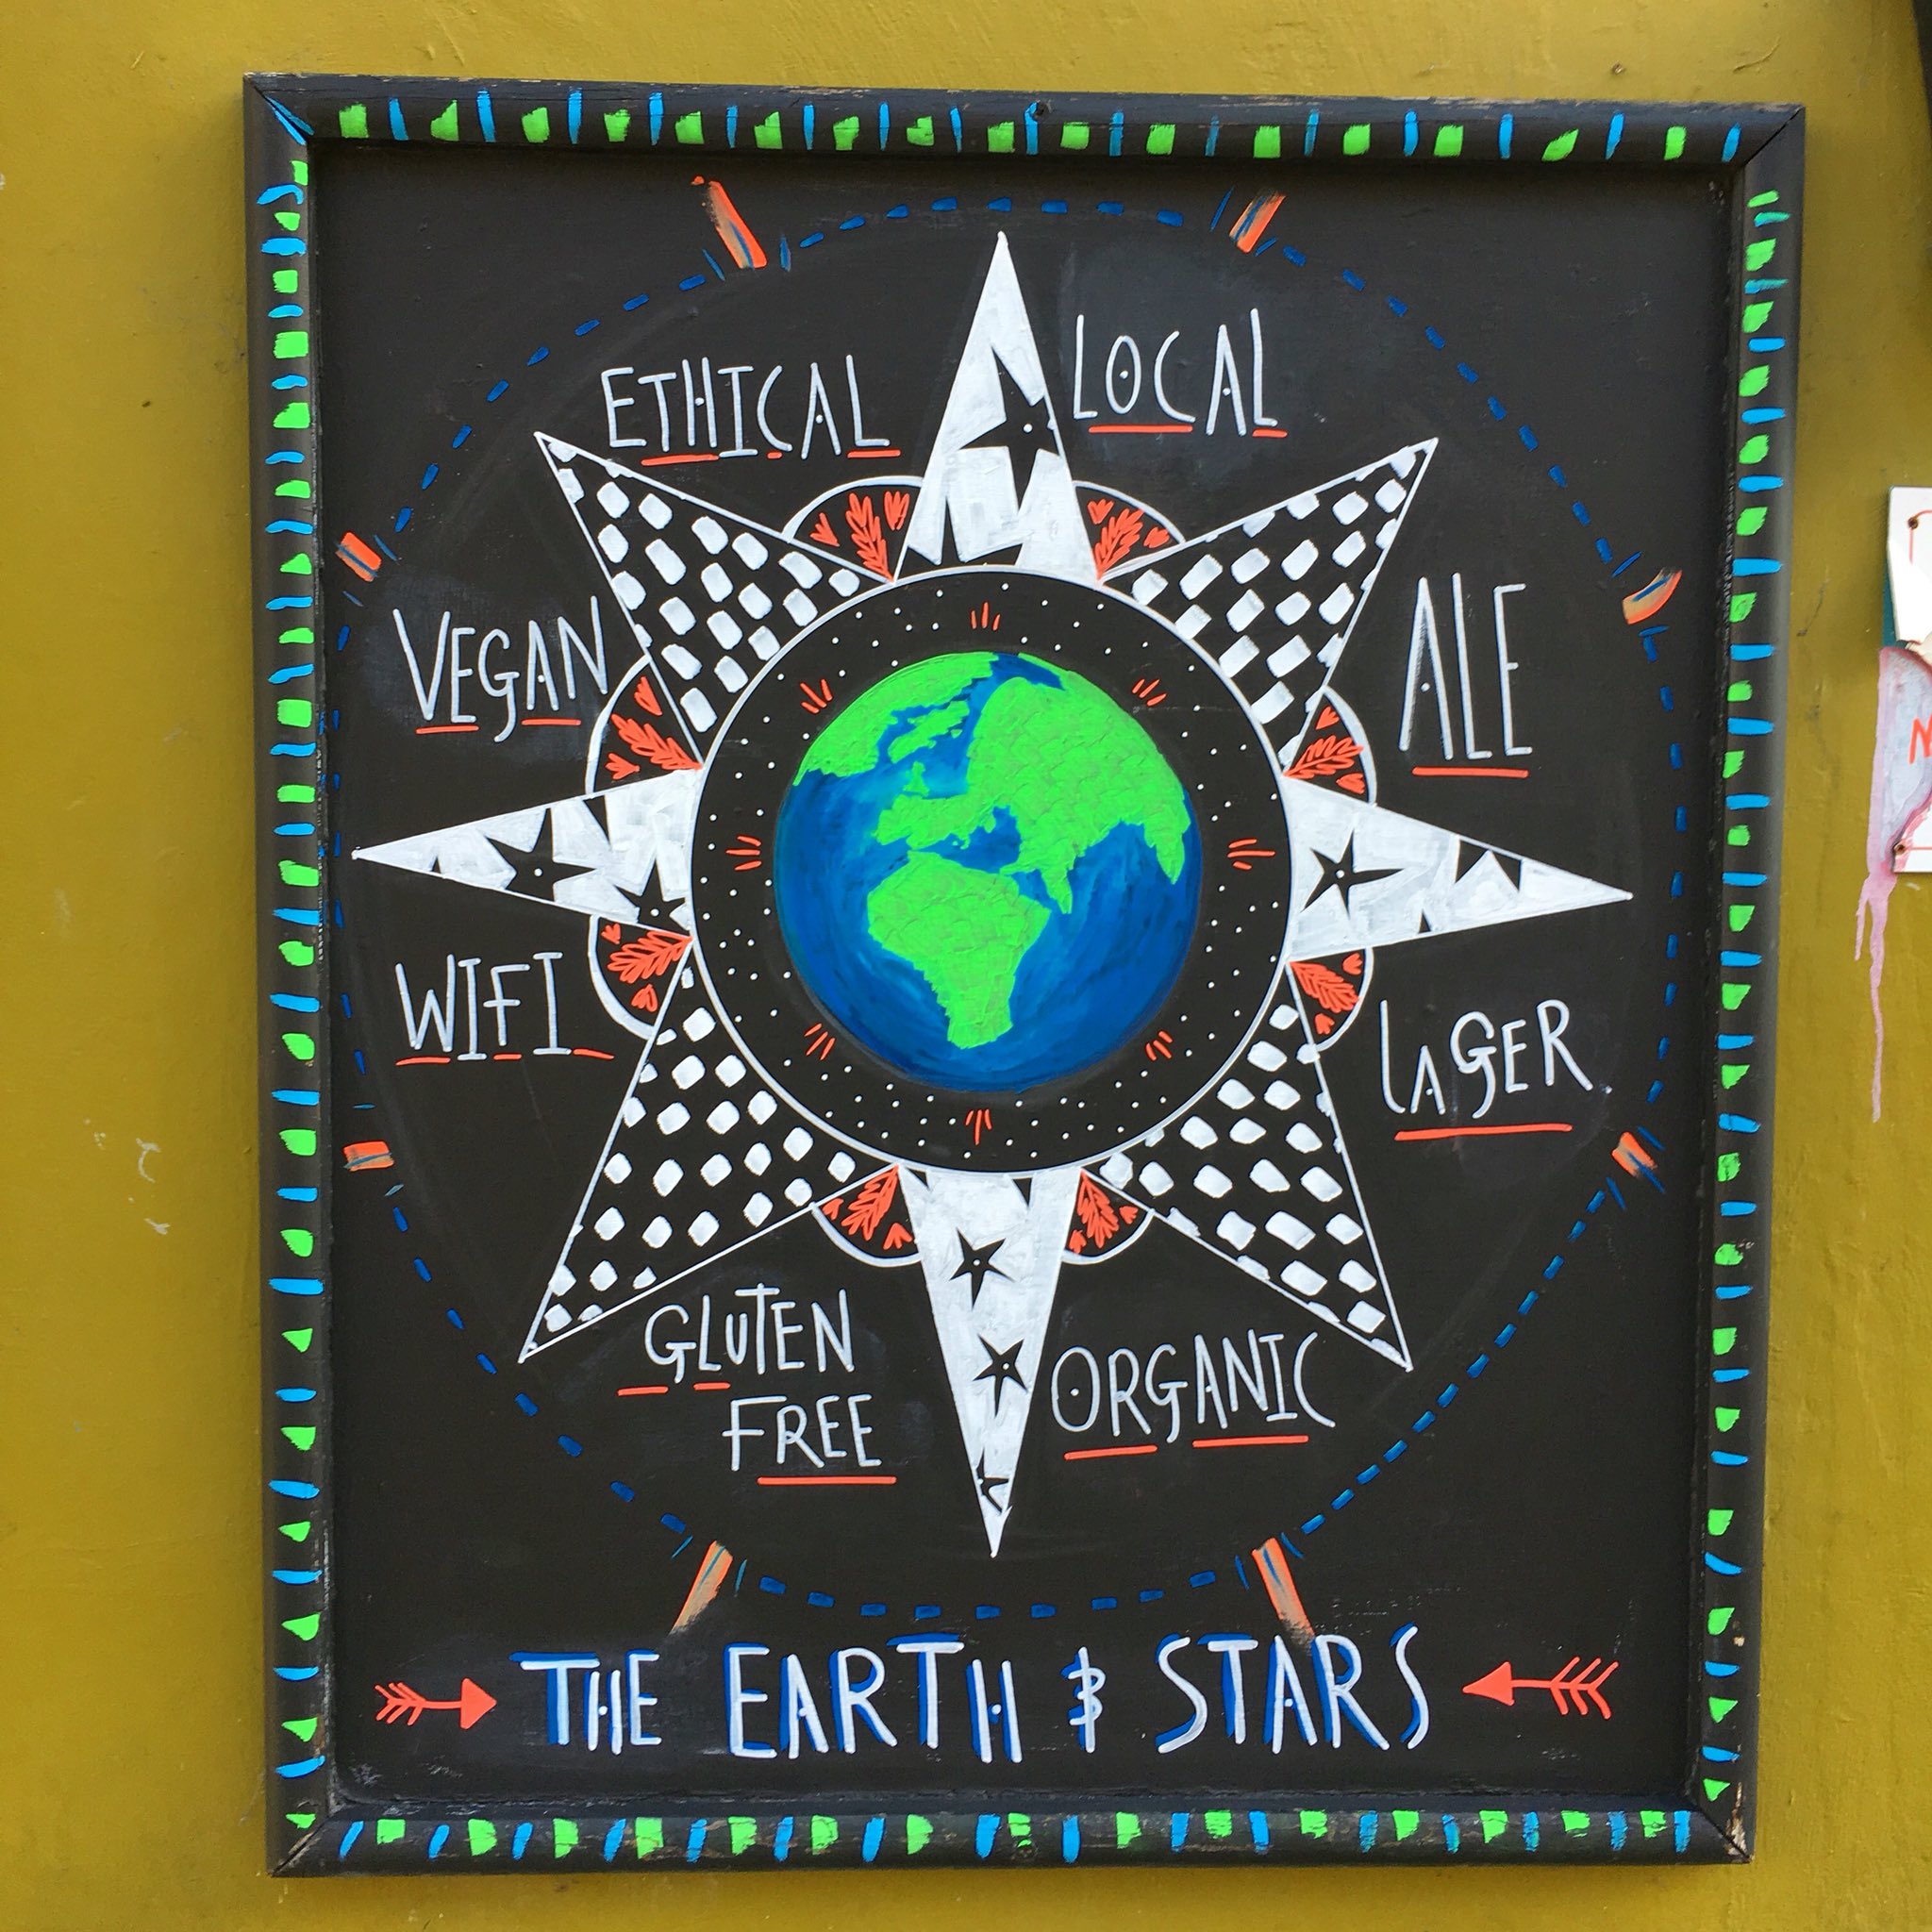 ETHICAL
LOCAL
VEGAN
ALE
WIFI
LAGER
GLUTEN
FREE
ORGANIC
THE EARTH & STARS